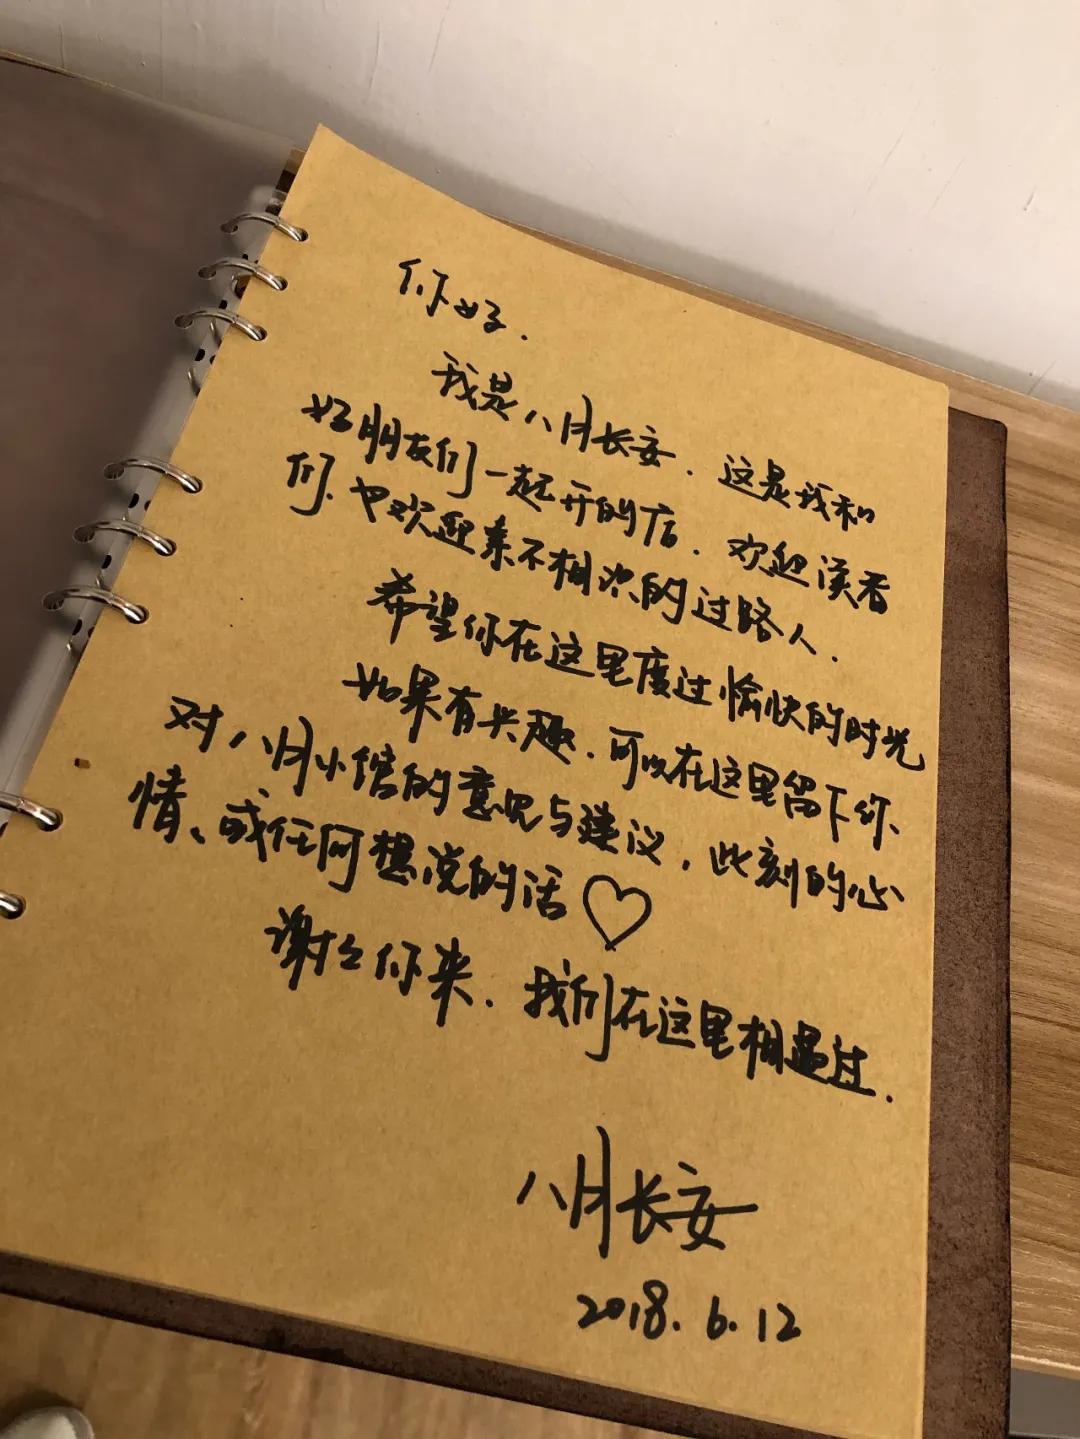 你好.
我是八月长安. 这是我和
好朋友们一起开的店. 欢迎读者
们. 也欢迎素不相识的过路人.
希望你在这里度过愉快的时光
如果有兴趣. 可以在这里留下你
对八月小馆的意见与建议, 此刻的心
情、或任何想说的话♡
谢谢你来. 我们在这里相遇过.
八月长安
2018.6.12